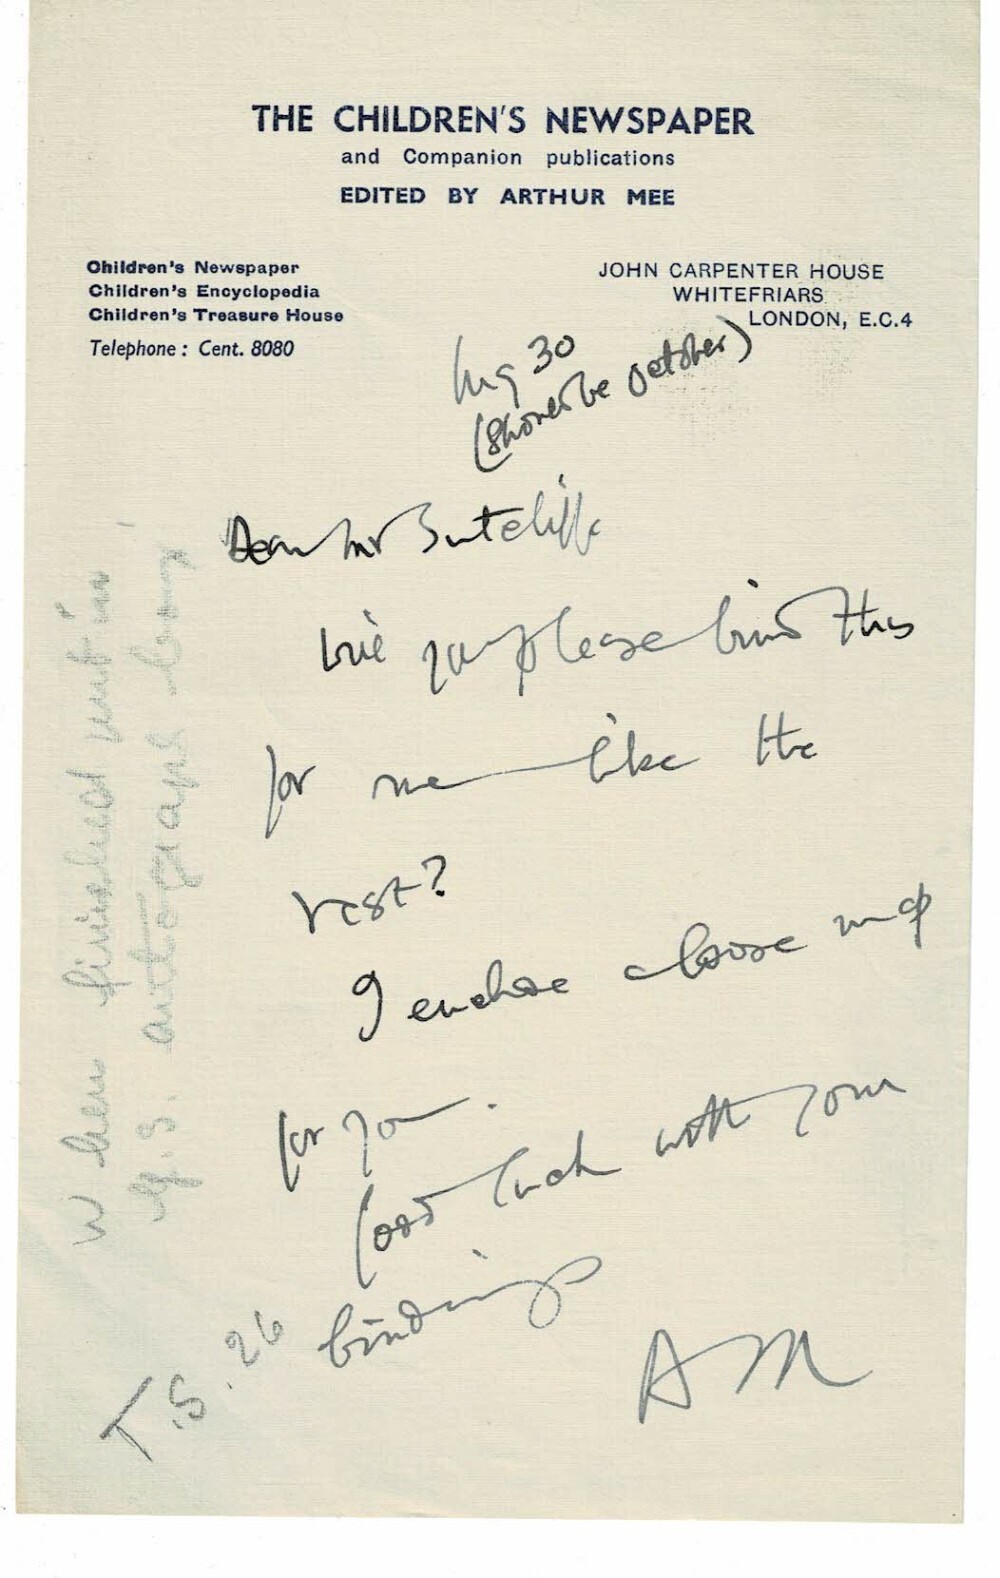 THE CHILDREN'S NEWSPAPER
and Companion publications
EDITED BY ARTHUR MEE
Children's Newspaper
Children's Encyclopedia
Children's Treasure House
Telephone: Cent. 8080
JOHN CARPENTER HOUSE
WHITEFRIARS
LONDON, E.C.4
Aug 30
(should be October)
Dear Mr Sutcliffe
Will you please bind this
for me like the
rest?
I enclose a loose
for you.
Good luck with your
bindings
AM
When finished put in
G.S. autograph
T.S. 26